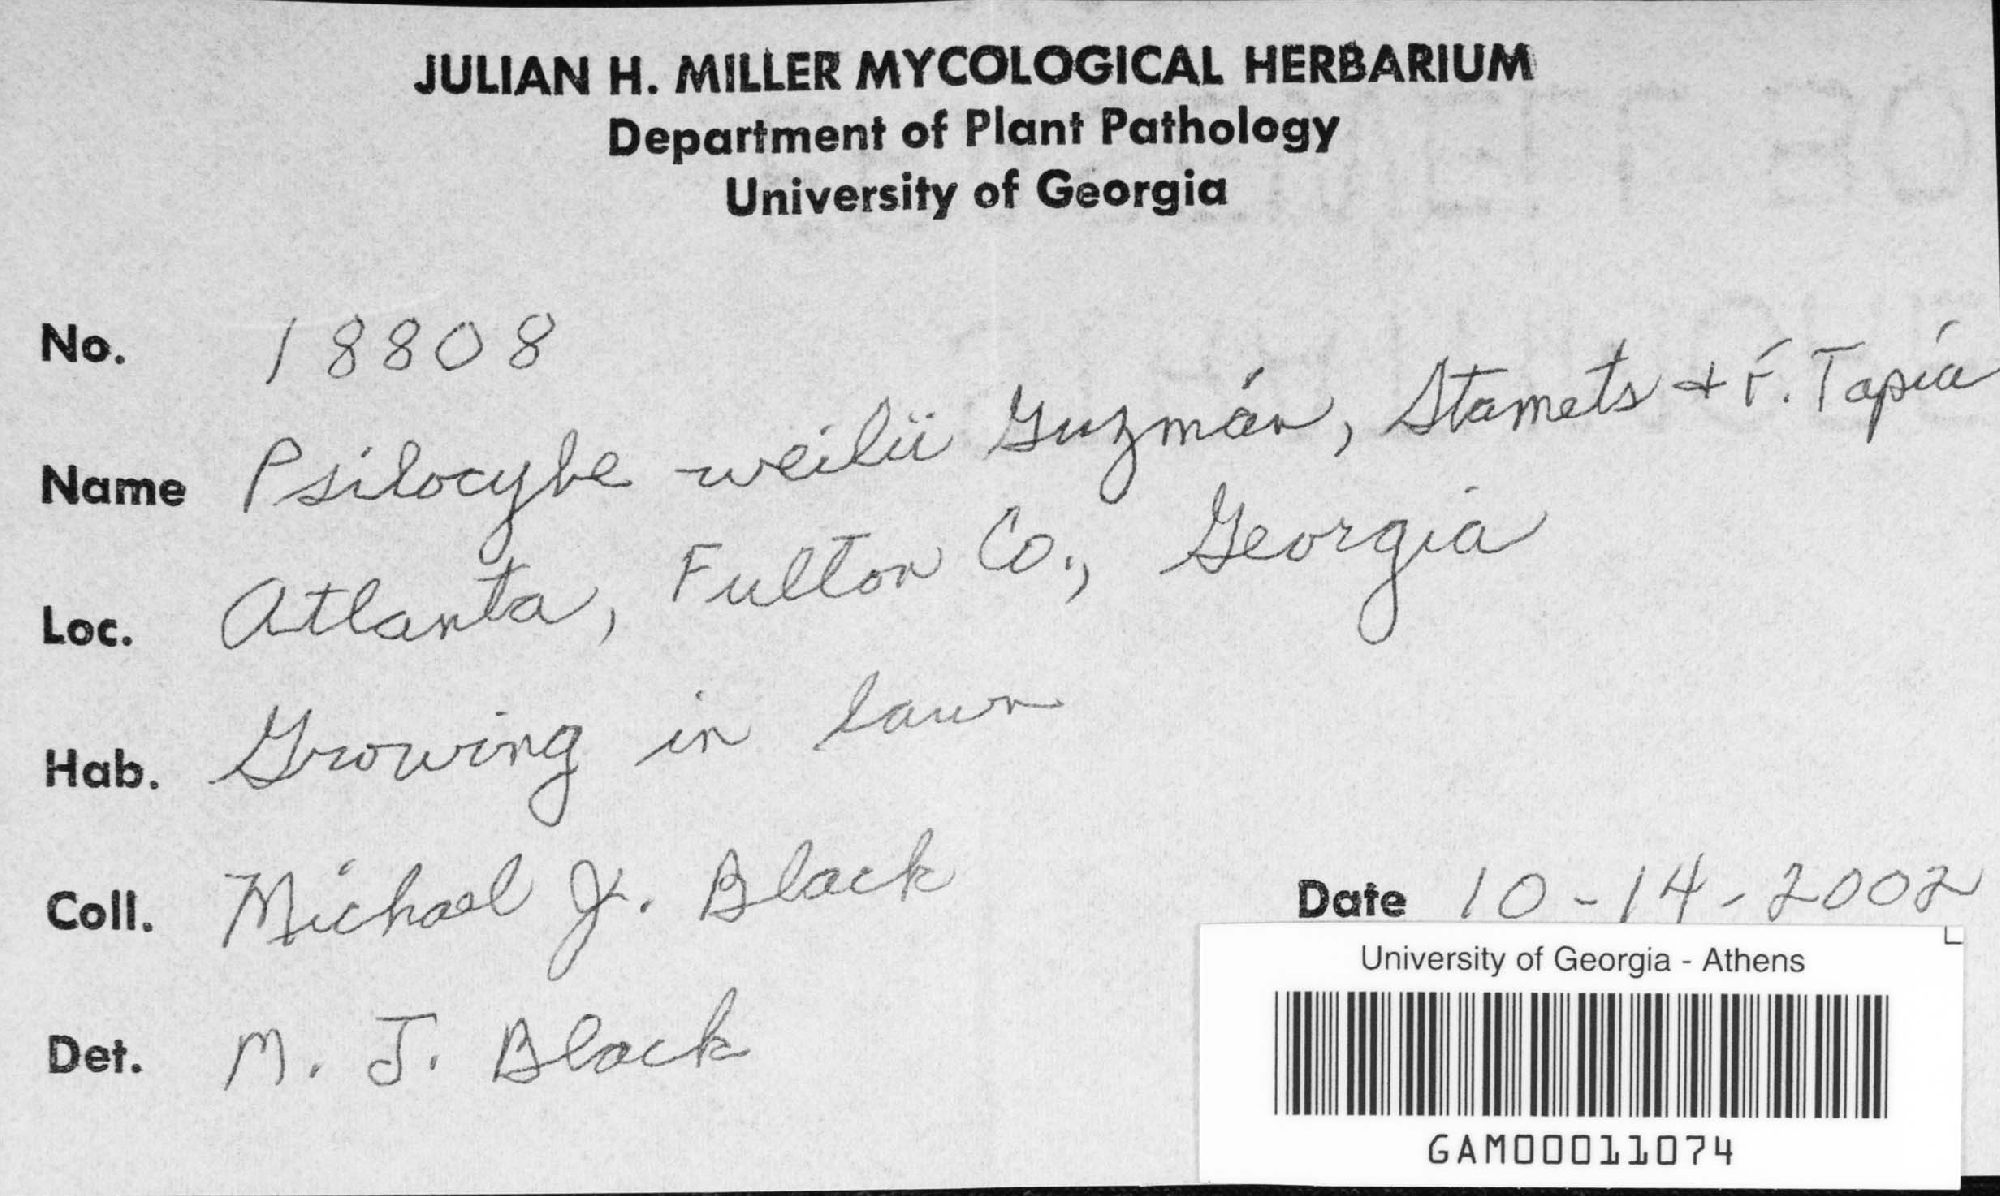 JULIAN H. MILLER MYCOLOGICAL HERBARIUM
Department of Plant Pathology
University of Georgia
No. 18808
Name Psilocybe weilii Guzmán, Stamets & F. Tapía
Loc. Atlanta, Fulton Co., Georgia
Hab. Growing in lawn
Coll. Michael J. Black Date 10-14-2002
Det. M. J. Black
University of Georgia - Athens
GAM00011074